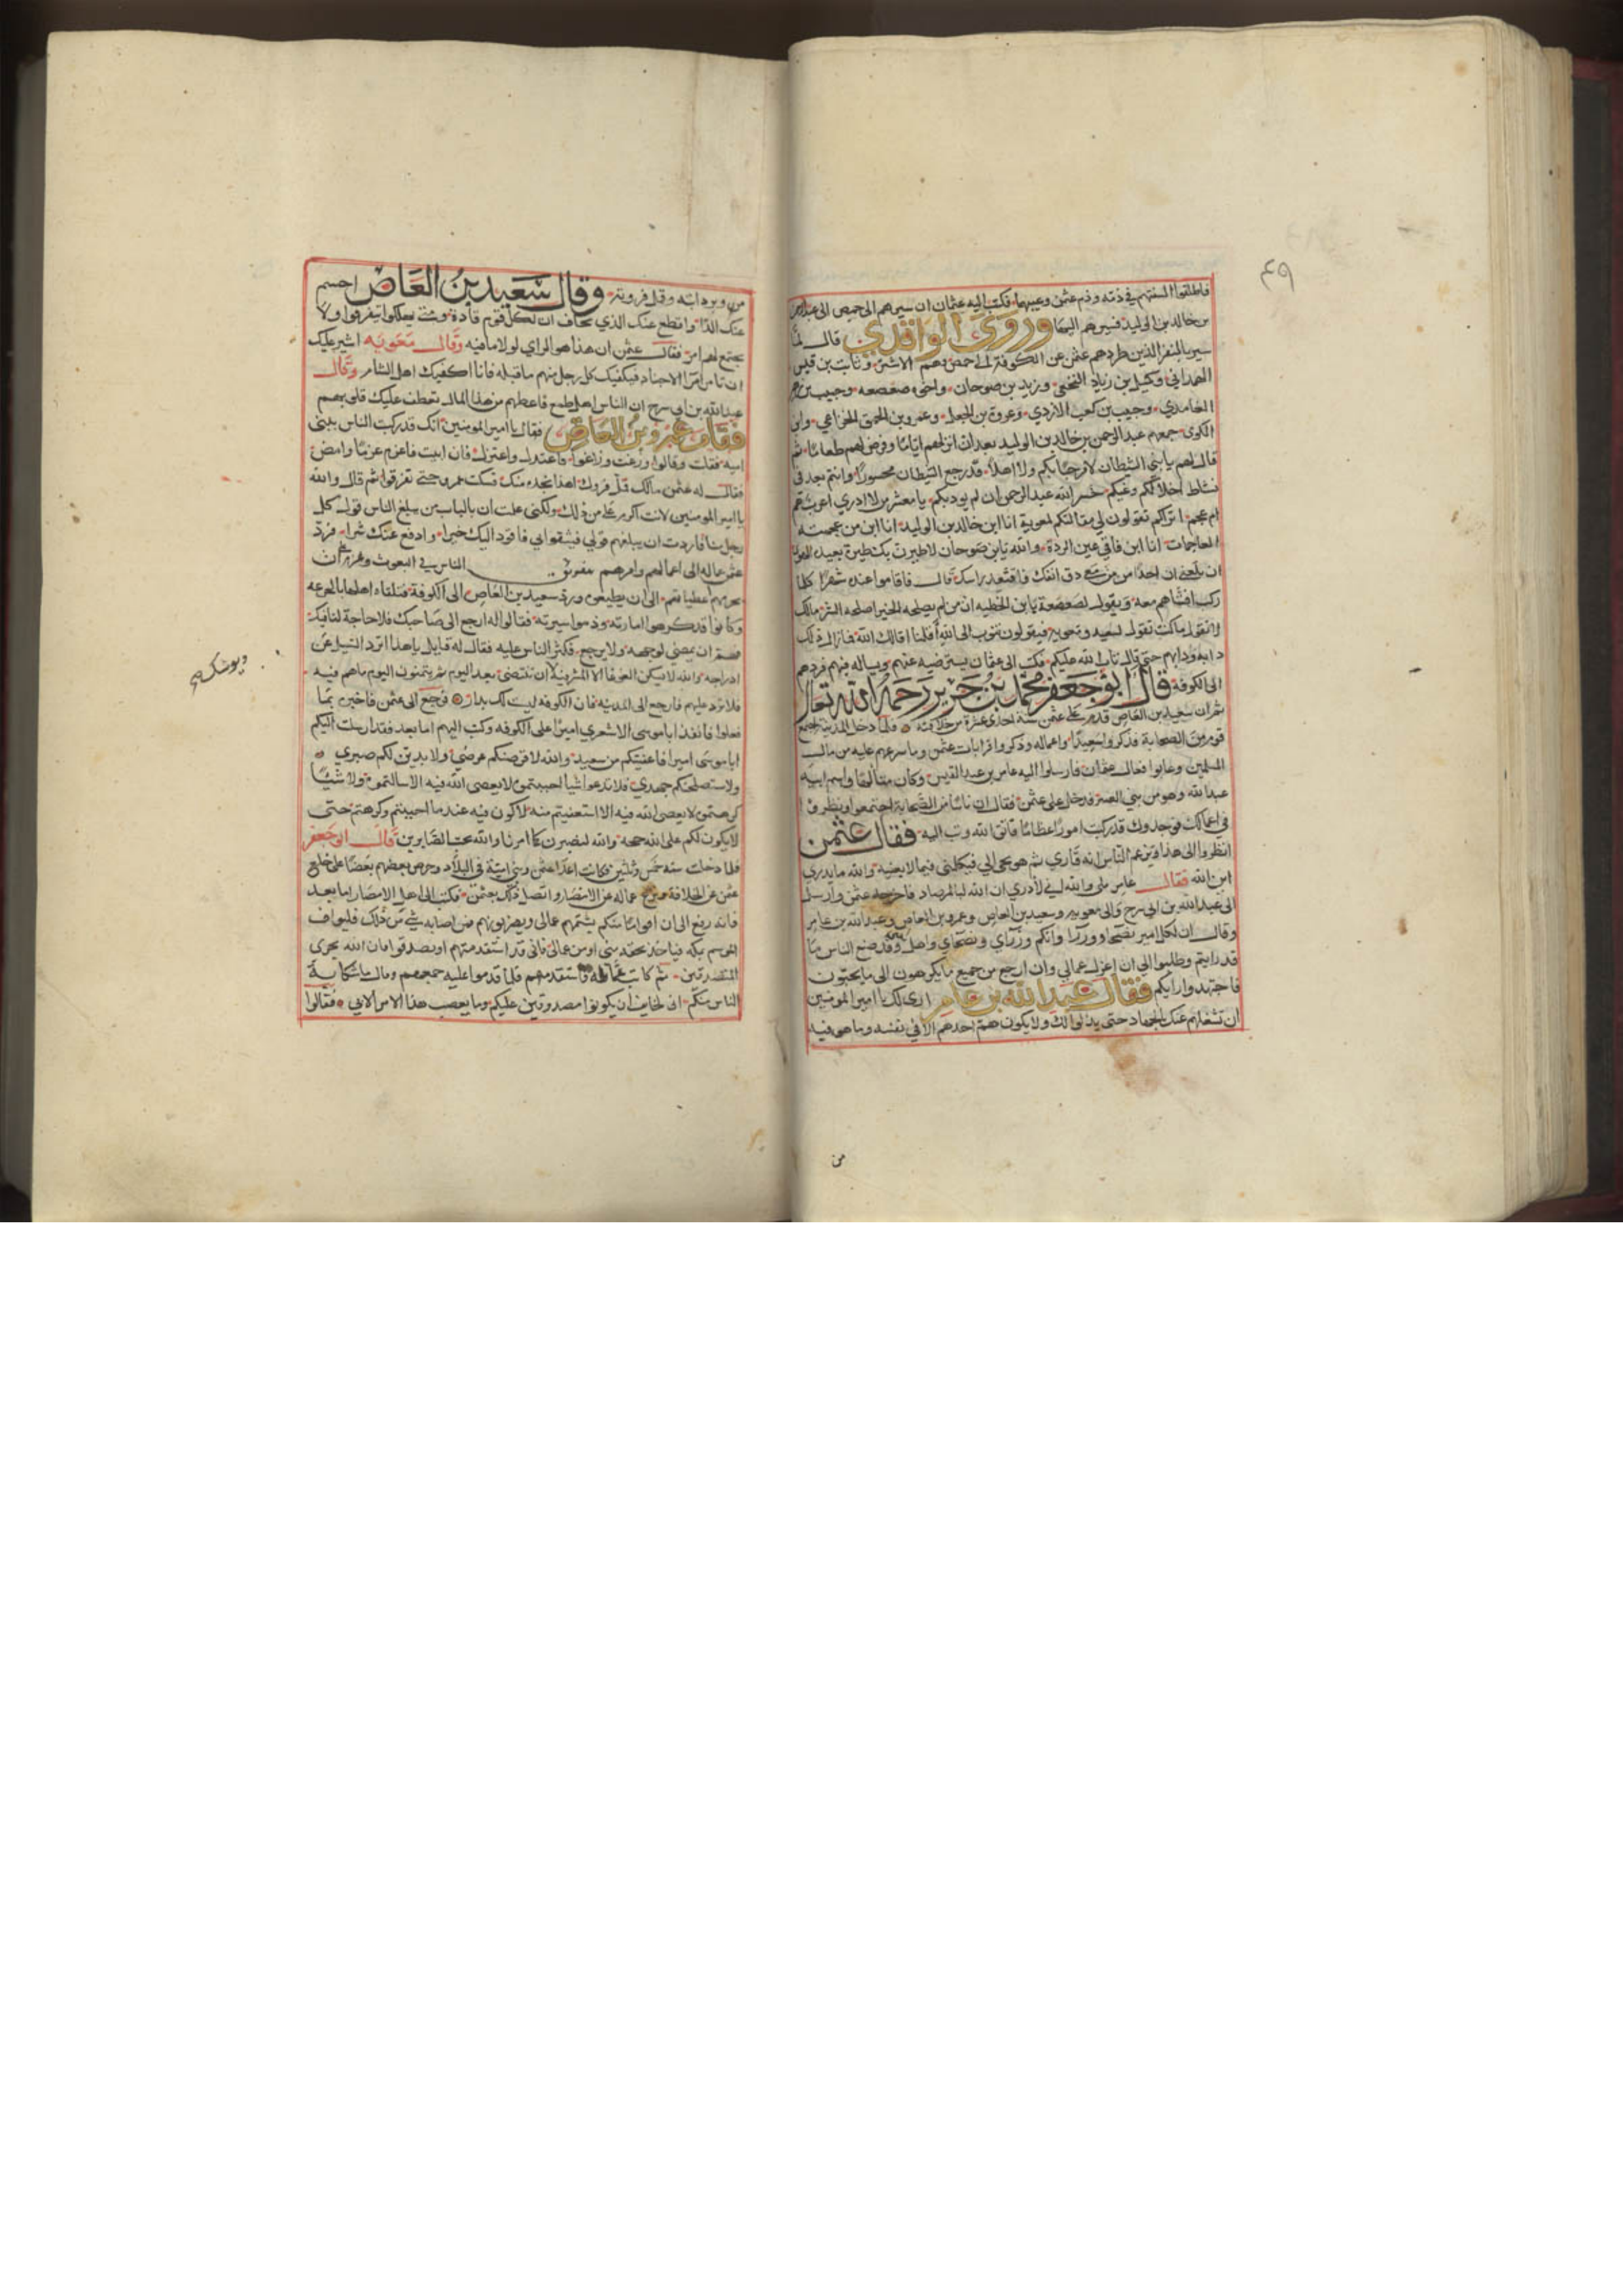 ٤٩
فاطلقوا السنتهم في ذمه وذم عثمن وعيبهما فكتب اليه عثمان ان سيرهم الى حمص الى عبد الرحمن
بن خالد بن الوليد فسيرهم اليها وروى الواقدي قال لما
سير بالنفر الذين طردهم عثمن عن الكوفة الى حمص وهم الاشتر وثابت بن قيس
الهمداني وكميل بن زياد النخعي وزيد بن صوحان واخوه صعصعه وجبيب بن
الغامدي وجبيب بن كعب الازدي وعروة بن الجعد وعمرو بن الحمق الخزاعي وابن
الكوى جمعهم عبد الرحمن بن خالد بن الوليد بعد ان انزلهم اياما وفرض لهم طعاما ثم
قال لهم يا بني الشيطان لا مرحبا بكم ولا اهلا قد رجع الشيطان محسورا وانتم بعد في
نشاط خسر الله عبد الرحمن ان لم يودبكم يا معشر من لا ادري اعرب هم
ام عجم اتراكم تقولون لي مقالتكم لمعوية انا ابن خالد بن الوليد انا ابن من عجمته
العاجمات انا ابن فاقي عين الردة والله يا بن صوحان لاطيرن بك طيرة بعيدة المهوى
ان بلغني ان احدا ممن معي دق انفك فاقتعد راسك قال فاقاموا عنده شهرا كلما
ركب امشاهم معه ويقول لصعصعة يا بن الخطيه ان من لم يصلحه الخير اصلحه الشر مالك
لا تقول ما كنت تقول لسعيد ومعوية فيقولون نتوب الى الله أقلنا اقالك الله فما زال ذلك
دابه ودابهم حتى قال تاب الله عليكم فكتب الى عثمان يسترضيه عنهم ويساله فيهم فردهم
الى الكوفة قال ابو جعفر محمد بن جرير رحمه الله تعالى
ثم ان سعيد بن العاص قدم على عثمن سنة احدى عشرة من خلافته فلما دخل المدينة اجتمع
قوم من الصحابة فذكروا سعيدا واعماله وذكروا قرابات عثمن وما سرعهم عليه من مال
المسلمين وعابوا فعال عثمان فارسلوا اليه عامر بن عبد القيس وكان متألها واسم ابيه
عبد الله وهو من بني العنبر فدخل على عثمن فقال ان ناسا من الصحابة اجتمعوا ونظروا
في اعمالك فوجدوك قد ركبت امورا عظاما فاتق الله وتب اليه فقال عثمن
انظروا الى هذا يزعم الناس انه قاري ثم هو يجي الي فيكلمني فيما لا يعنيه والله ما يدري
اين الله فقال عامر بلى والله اني لأدري ان الله لبالمرصاد فاخرجه عثمن وارسل
الى عبد الله بن ابي سرح والى معويه وسعيد بن العاص وعمرو بن العاص وعبد الله بن عامر
وقال ان لكل امير نصحاء ووزرآء وانكم وزرآي ونصحاي واهل وقد صنع الناس ما
قد رايتم وطلبوا الي ان اعزل عمالي وان ارجع من جميع ما يكرهون الى ما يحبون
فاجتهدوا رايكم فقال عبد الله بن عامر ارى لك يا امير المومنين
ان تشغلهم عنك بالجهاد حتى يذلوا لك ولا يكون همة احدهم الا في نفسه وما هو فيه
من
من وبر دابته وقمل فروته وقال سعيد بن العاص احسم
عنك الدآ واقطع عنك الذي تخاف ان لكل قوم قادة ومتى يهلكوا يتفرقوا ولا
يجتمع لهم امر فقال عثمن ان هذا هو الراي لولا ما فيه وقال معويه اشير عليك
ان تامر امرآ الاجناد فيكفيك كل رجل منهم ما قبله فانا اكفيك اهل الشام وقال
عبد الله بن ابي سرح ان الناس اهل طمع فاعطهم من هذا المال تعطف عليك قلوبهم
فقام عمرو بن العاص فقال يا امير المومنين انك قد ركبت الناس ببني
اميه فقلت وقالوا وزغت وزاغوا فاعتدل واعتزل فان ابيت فاعزم عزما وامض
فقال له عثمن مالك قمل فروك اهذا بجد منك فسكت عمرو حتى تفرقوا ثم قال والله
يا امير المومنين لانت اكرم علي من ذلك ولكني علمت ان بالباب من يبلغ الناس قول كل
رجل منا فاردت ان يبلغهم قولي فيثقوا بي فاقود اليك خيرا وادفع عنك شرا فرد
عثمن عماله الى اعمالهم وامرهم الناس في البعوث وعزم على ان
يحرمهم اعطياتهم الى ان يطيعوه ورد سعيد بن العاص الى الكوفة فتلقاه اهلها بالجرعه
وكانوا قد كرهوا امارته وذموا سيرته فقالوا له ارجع الى صاحبك فلا حاجة لنا فيك
فهم ان يمضي لوجهه ولا يرجع فكثر الناس عليه فقال له قايل يا هذا اترد السيل عن
ادراجه والله لا يسكن الغوغا الا المشرفية ان تنتضى بعد اليوم ثم يتمنون اليوم ما هم فيه
فلا يرد عليهم فارجع الى المدينه فان الكوفه ليست لك بدار فرجع الى عثمن فاخبره بما
فعلوا فانفذ ابا موسى الاشعري اميرا على الكوفه وكتب اليهم اما بعد فقد ارسلت اليكم
ابا موسى اميرا فاعفيتكم من سعيد والله لافرضنكم عرضي ولابذلن لكم صبري
ولاستصلحنكم جهدي فلا تدعوا شيا احببتموه لا يعصى الله فيه الا سالتموه ولا شيئا
كرهتموه لا يعصى الله فيه الا استعفيتم منه لاكون فيه عند ما احببتم وكرهتم حتى
لا يكون لكم على الله حجة والله لنصبرن كما امرنا والله يحب الصابرين قال ابو جعفر
فلما دخلت سنه خمس وثلثين فكاتب اعدآ عثمن وبني امية في البلاد وحرص بعضهم بعضا على خلع
عثمن عن الخلافة وعزل عماله عن الامصار واتصل ذلك بعثمن فكتب الى اهل الامصار اما بعد
فانه رفع الي ان اقواما منكم يشتمهم عمالي ويضربونهم فمن اصابه شي من ذلك فليواف
الموسم بمكه فياخذ بحقه مني او من عمالي فاني قد استقدمتهم او يصدقوا فان الله يجزي
المتصدقين ثم كاتب عماله واستقدمهم فلما قدموا عليه جمعهم وقال ما شكاية
الناس منكم اني لخايف ان يكونوا مصدوقين عليكم وما يعصب هذا الامر الا بي فقالوا